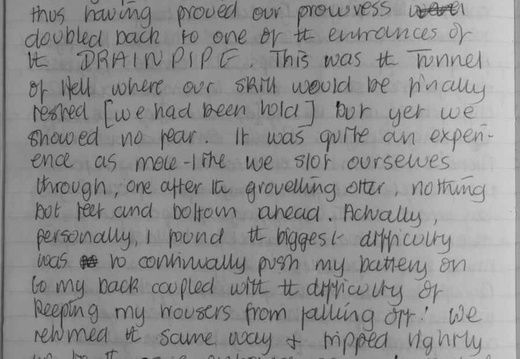 thus having proved our prowess
doubled back to one of tt entrances of
tt DRAINPIPE. This was tt Tunnel
of Hell where our skill would be finally
tested [we had been told] but yet we
showed no fear. It was quite an experi-
ence as mole-like we slot ourselves
through, one after tt grovelling other, nothing
but feet and bottom ahead. Actually,
personally, I found tt biggest difficulty
was to continually push my battery on
to my back coupled with tt difficulty of
keeping my trousers from falling off! We
returned tt same way & tripped lightly